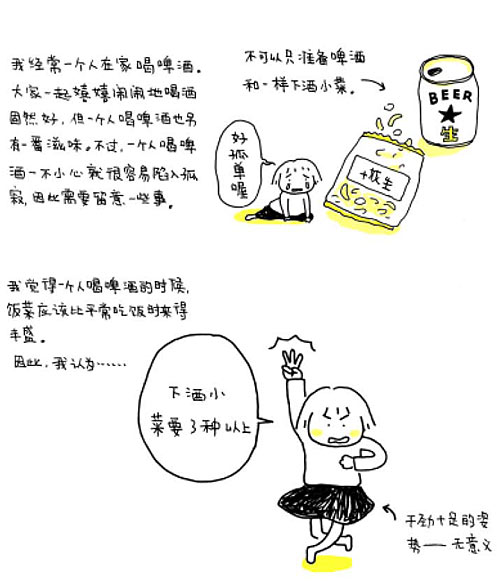 我经常一个人在家喝啤酒。
大家一起嬉嬉闹闹地喝酒
固然好，但一个人喝啤酒也另
有一番滋味。不过，一个人喝啤
酒一不小心就很容易陷入孤
寂，因此需要留意一些事。
不可以只准备啤酒
和一样下酒小菜。
BEER
★
生
好孤单喔
+花生
我觉得一个人喝啤酒的时候，
饭菜应该比平常吃饭时来得
丰盛。
因此，我认为……
下酒小
菜要3种以上
干劲十足的姿
势——无意义